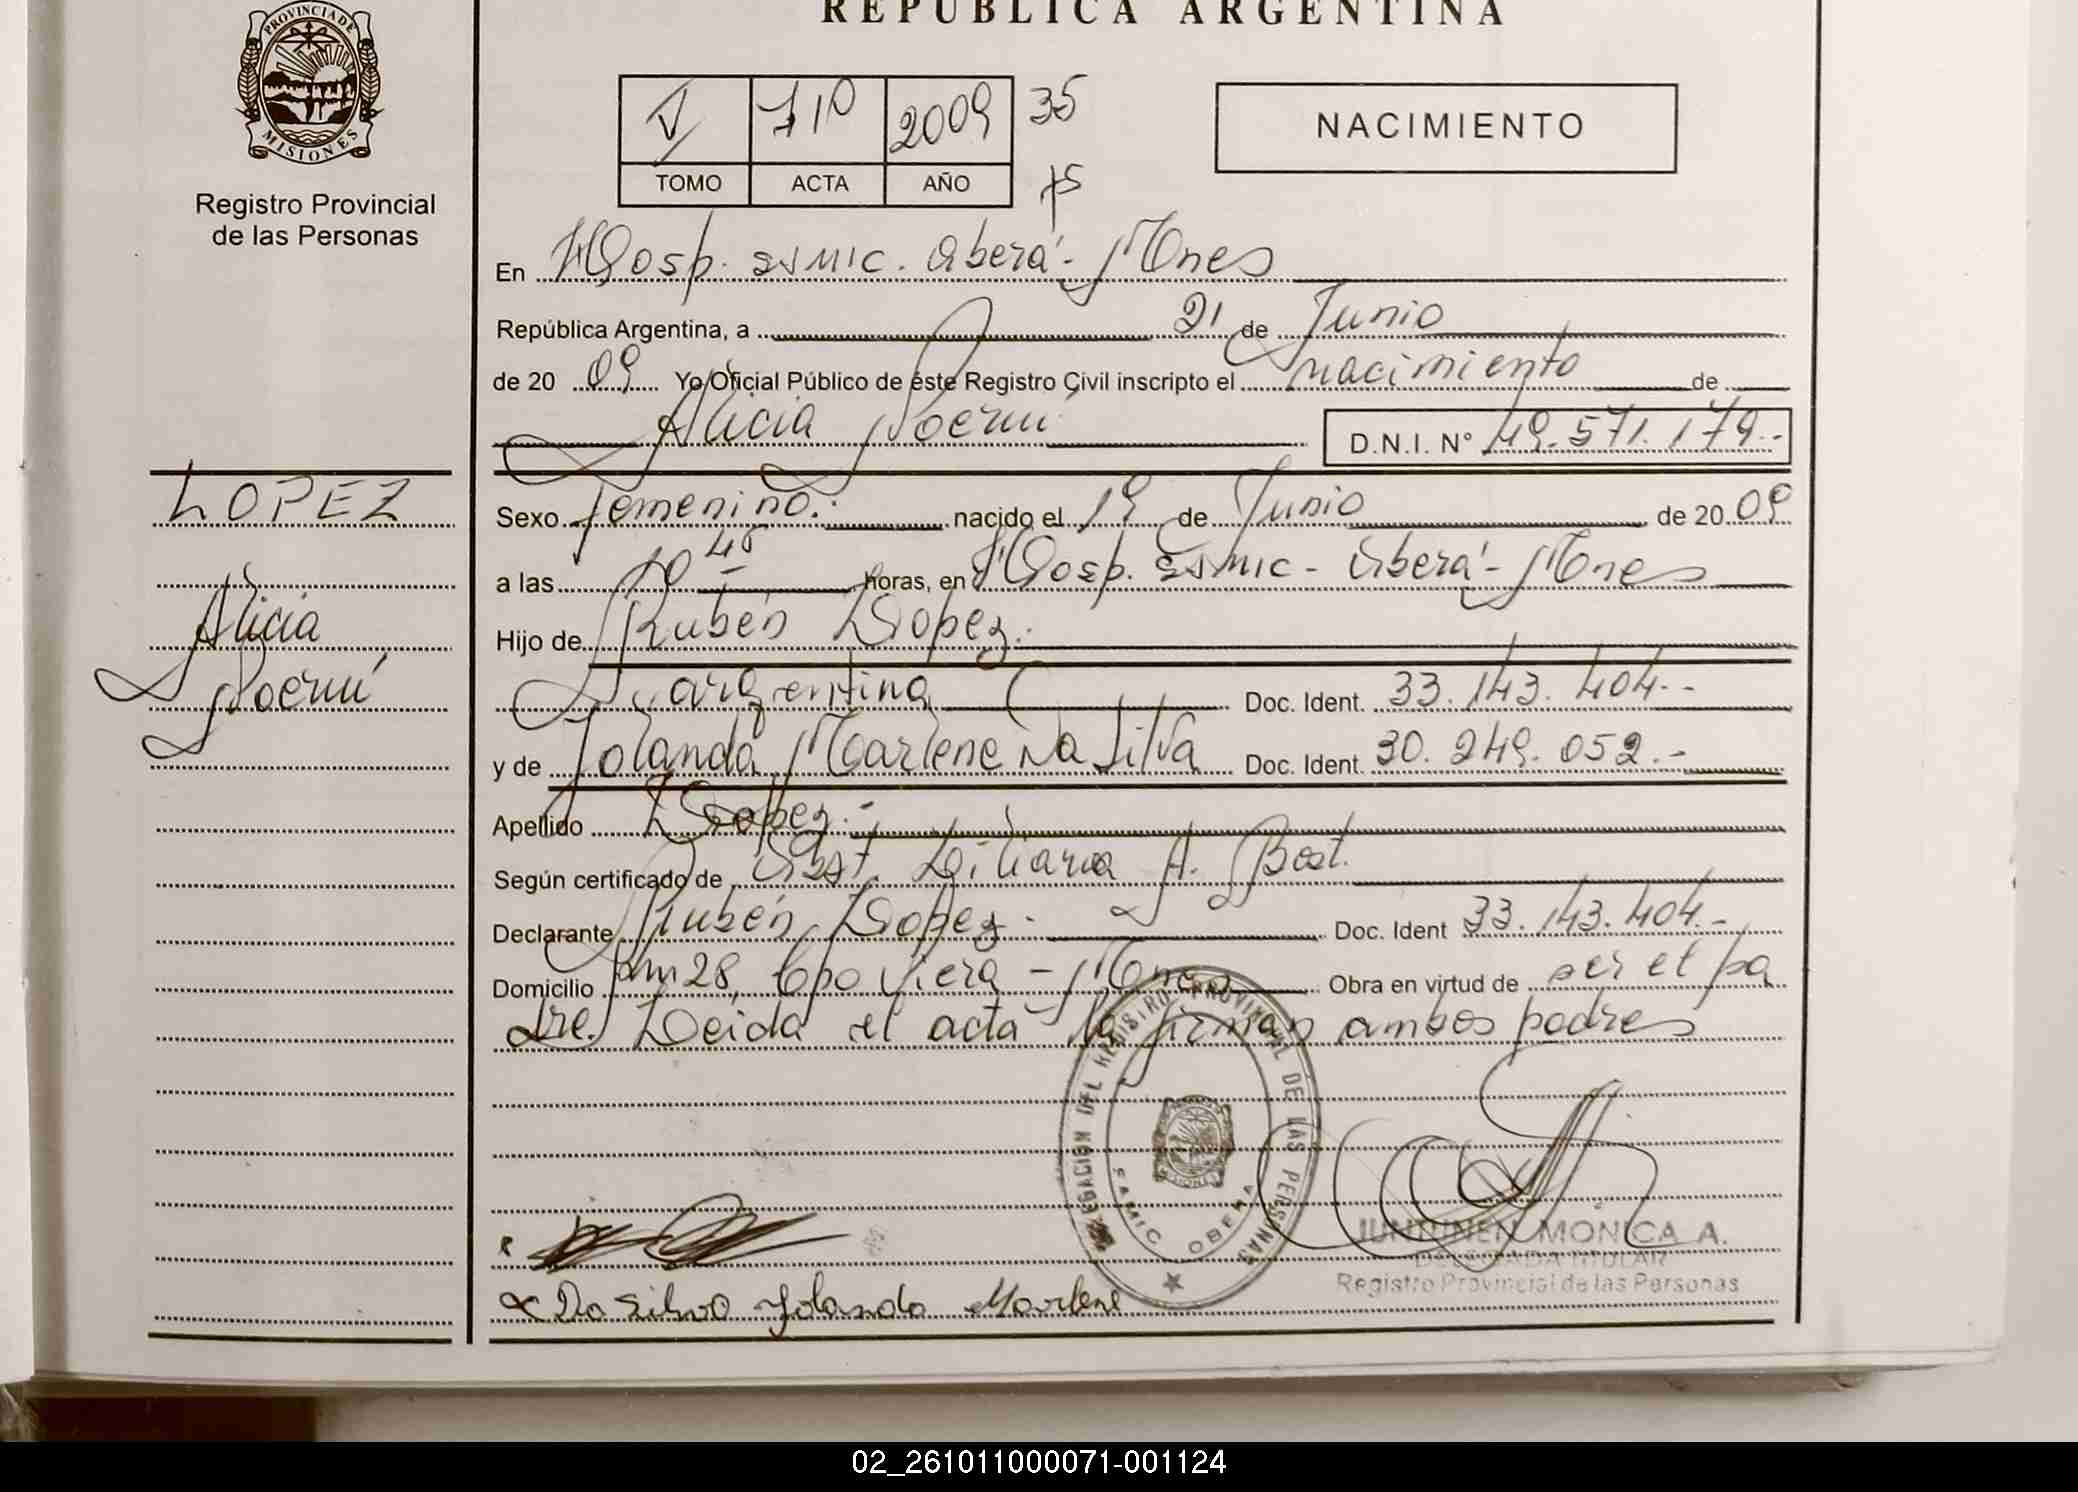 REPÚBLICA ARGENTINA
PROVINCIA DE
MISIONES
Registro Provincial
de las Personas
V 710 2009 35
TOMO ACTA AÑO 75
NACIMIENTO
En Hosp. SAMIC. Oberá - Mnes
República Argentina, a 21 de Junio
de 20 09 Yo Oficial Público de éste Registro Civil inscripto el nacimiento de
Alicia Noemí D.N.I. N° 49.571.179.-
LOPEZ
Sexo femenino. nacido el 19 de Junio de 20 09
a las 10 45 horas, en Hosp. SAMIC - Oberá - Mnes
Alicia
Hijo de Rubén Lopez.
Noemí
argentina Doc. Ident. 33.143.404.-
y de Iolanda Marlene Da Silva Doc. Ident. 30.249.052.-
Apellido Lopez.-
Según certificado de Obst. Liliana A. Bost.
Declarante Rubén Lopez. Doc. Ident 33.143.404.-
Domicilio km 28, Cpo Viera - Mnes Obra en virtud de ser el pa
dre. Leida el acta la firman ambos padres
DELEGACION DEL REGISTRO PROVINCIAL DE LAS PERSONAS
SAMIC OBERA
JUNTUNEN MONICA A.
DELEGADA TITULAR
Registro Provincial de las Personas
Da Silva Iolanda Marlene
02_261011000071-001124